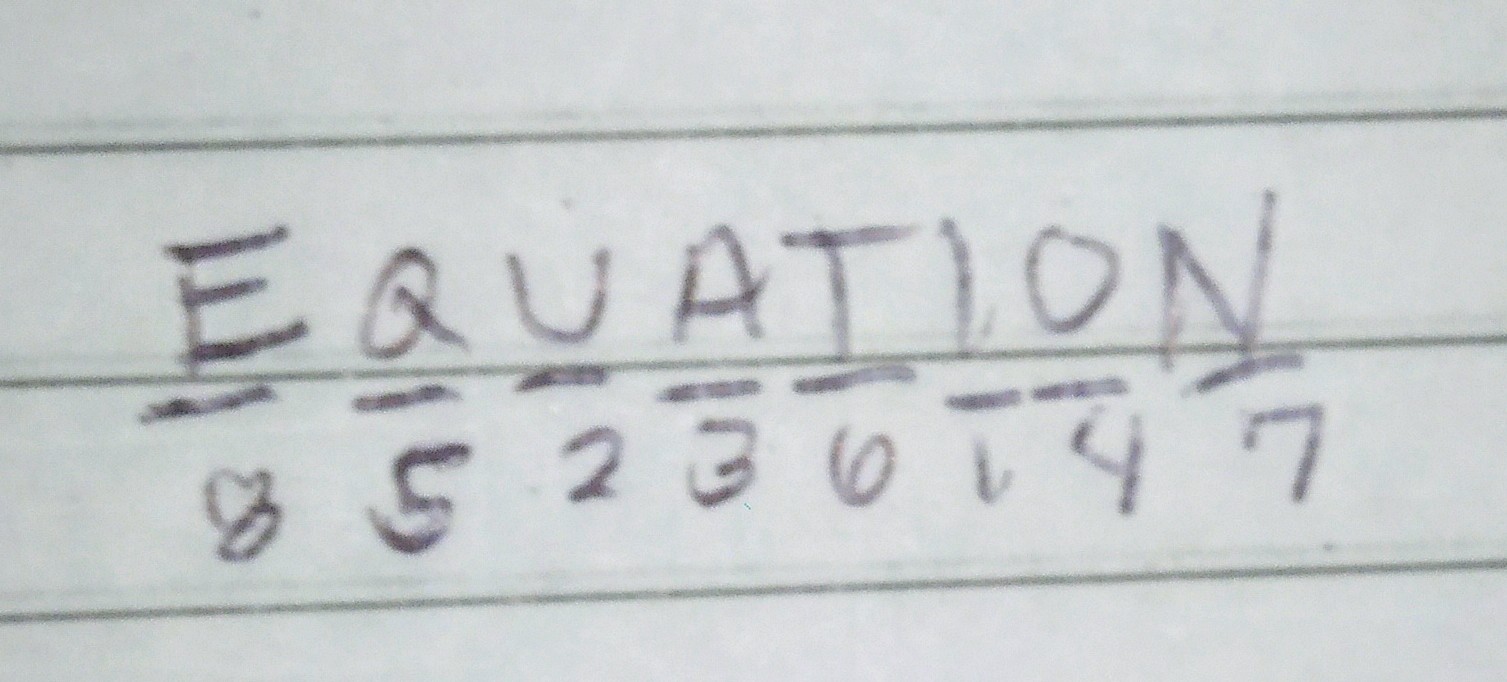 EQUATION
8 5 2 3 6 1 4 7